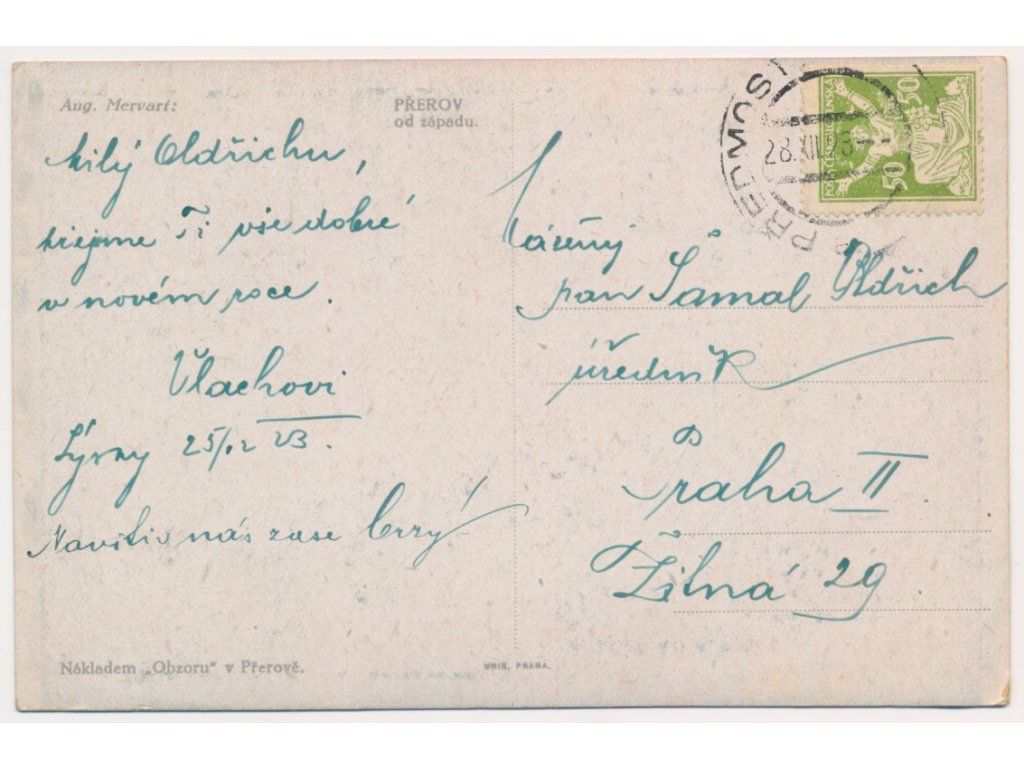 Aug. Mervart:
PŘEROV
od západu.
Milý Oldřichu,
přejeme Ti vše dobré
v novém roce.
Vlachovi
25/12 23.
Navštiv nás zase brzy!
Nákladem „Obzoru“ v Přerově.
UNIE, PRAHA.
PŘEDMOSTÍ
28.XII.23
50 50
Vážený
pan Šamal Oldřich
úředník
Praha II.
Žitná 29